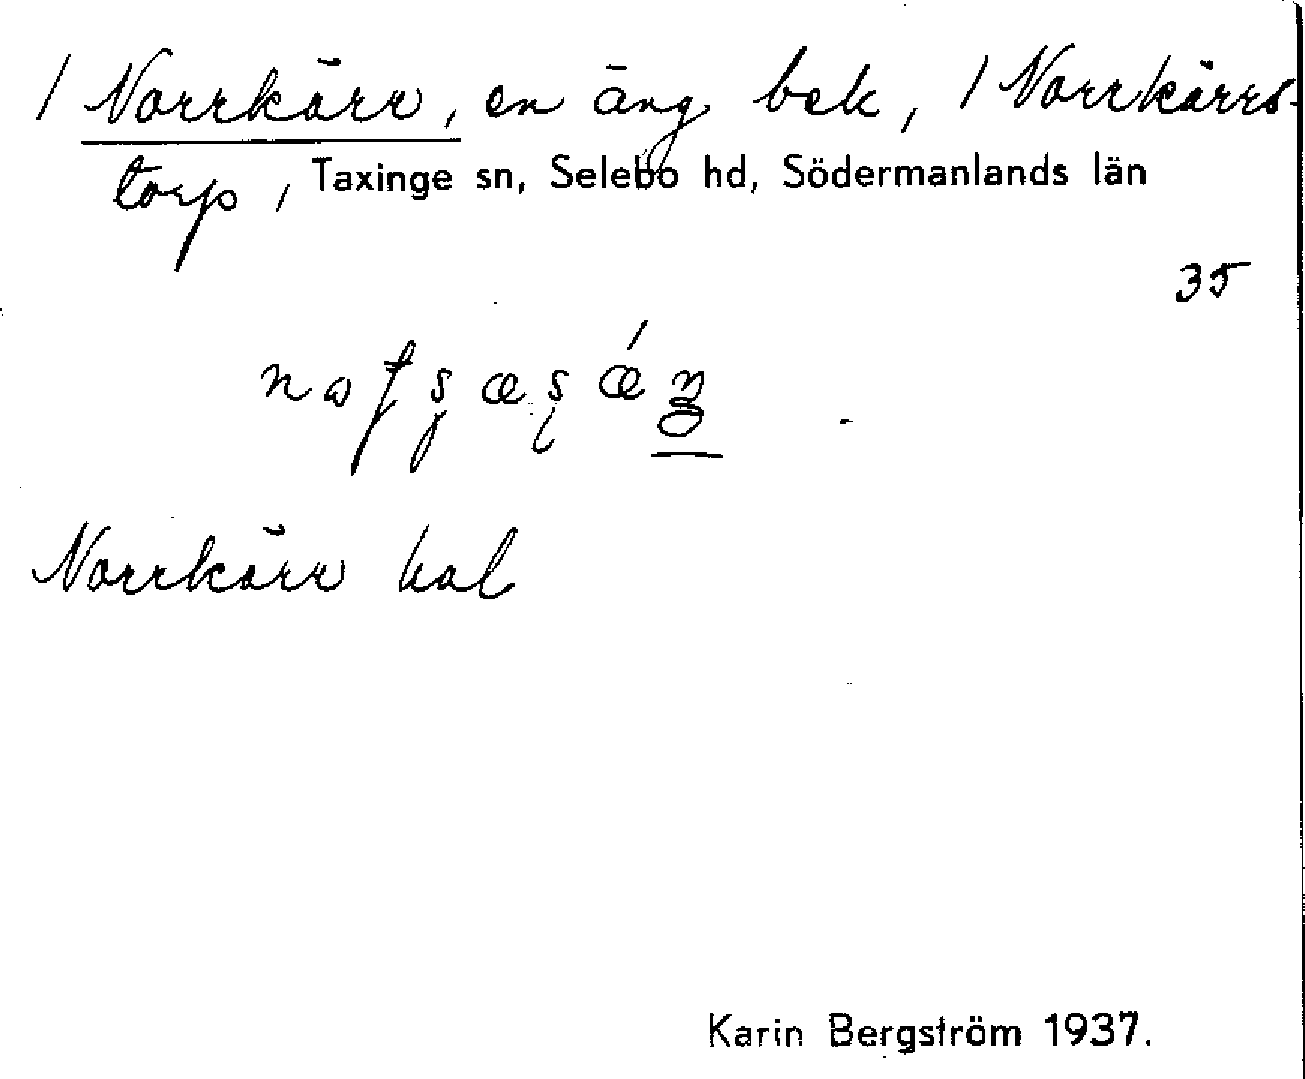 / Norrkärr, en äng bek, / Norrkärrs-
torp, Taxinge sn, Selebo hd, Södermanlands län
35
Norrkärr kal
Karin Bergström 1937.